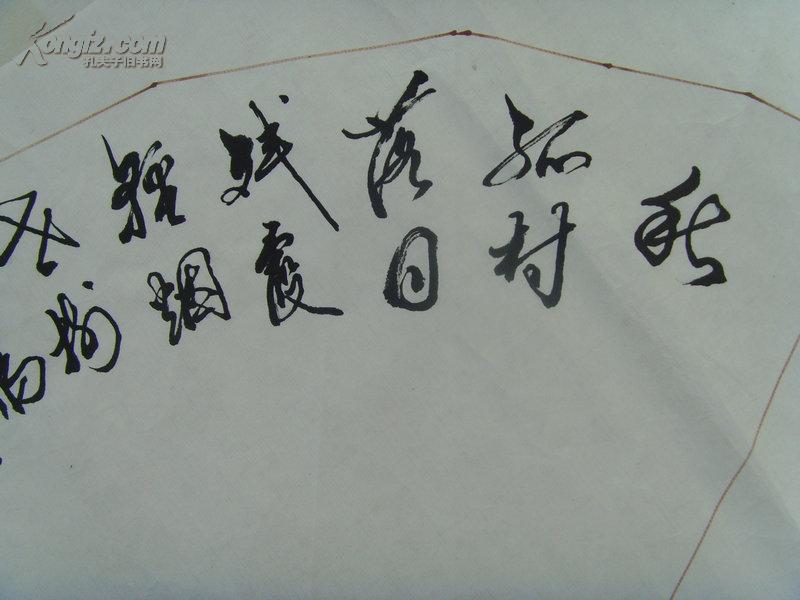 秋
孤村
落日
残霞
轻烟
老树
Kongfz.com
孔夫子旧书网